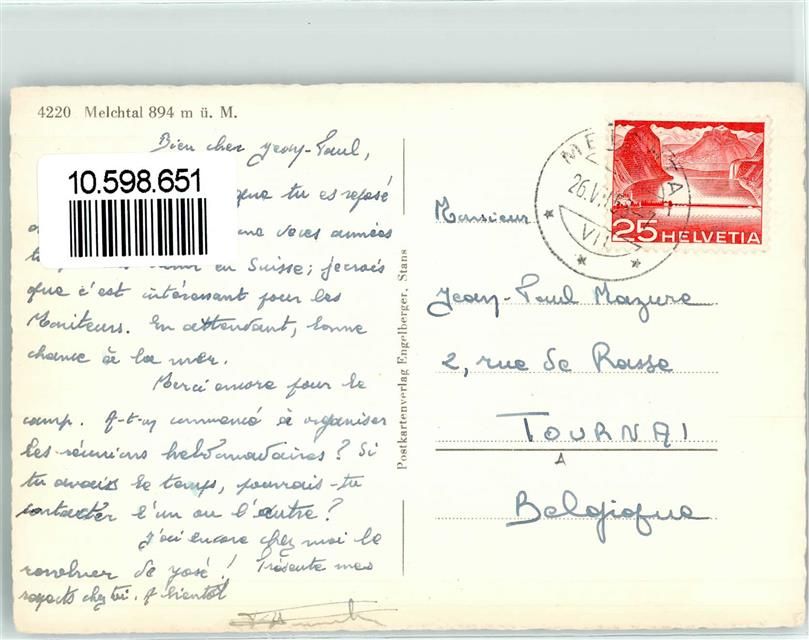 4220 Melchtal 894 m ü. M.
Bien cher Jean-Paul,
10.598.651
que tu es reposé
années
en Suisse; je crois
que c'est intéressant pour les
Moniteurs. En attendant, bonne
chance à la mer.
Merci encore pour le
camp. A-t-on commencé à organiser
les réunions hebdomadaires? Si
tu avais le temps, pourrais-tu
contacter l'un ou l'autre?
J'ai encore chez moi le
de José! Présente mes
respects chez toi. A bientôt
Postkartenverlag Engelberger, Stans
26.VI
VII
25 HELVETIA
Monsieur
Jean-Paul Mazure
2, rue de Rasse
TOURNAI
Belgique